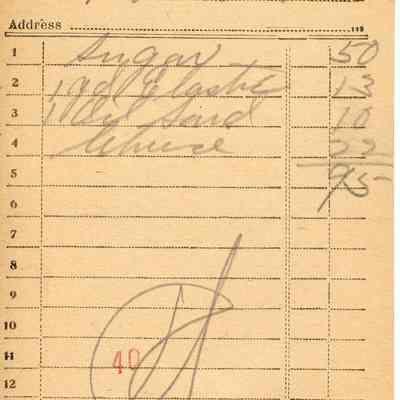 Address
1 Sugar 50
2 1 yd Elastic 13
3 1 Oil Sard 10
4 Cheese 22
5 95
6
7
8
9
10
11 40
12